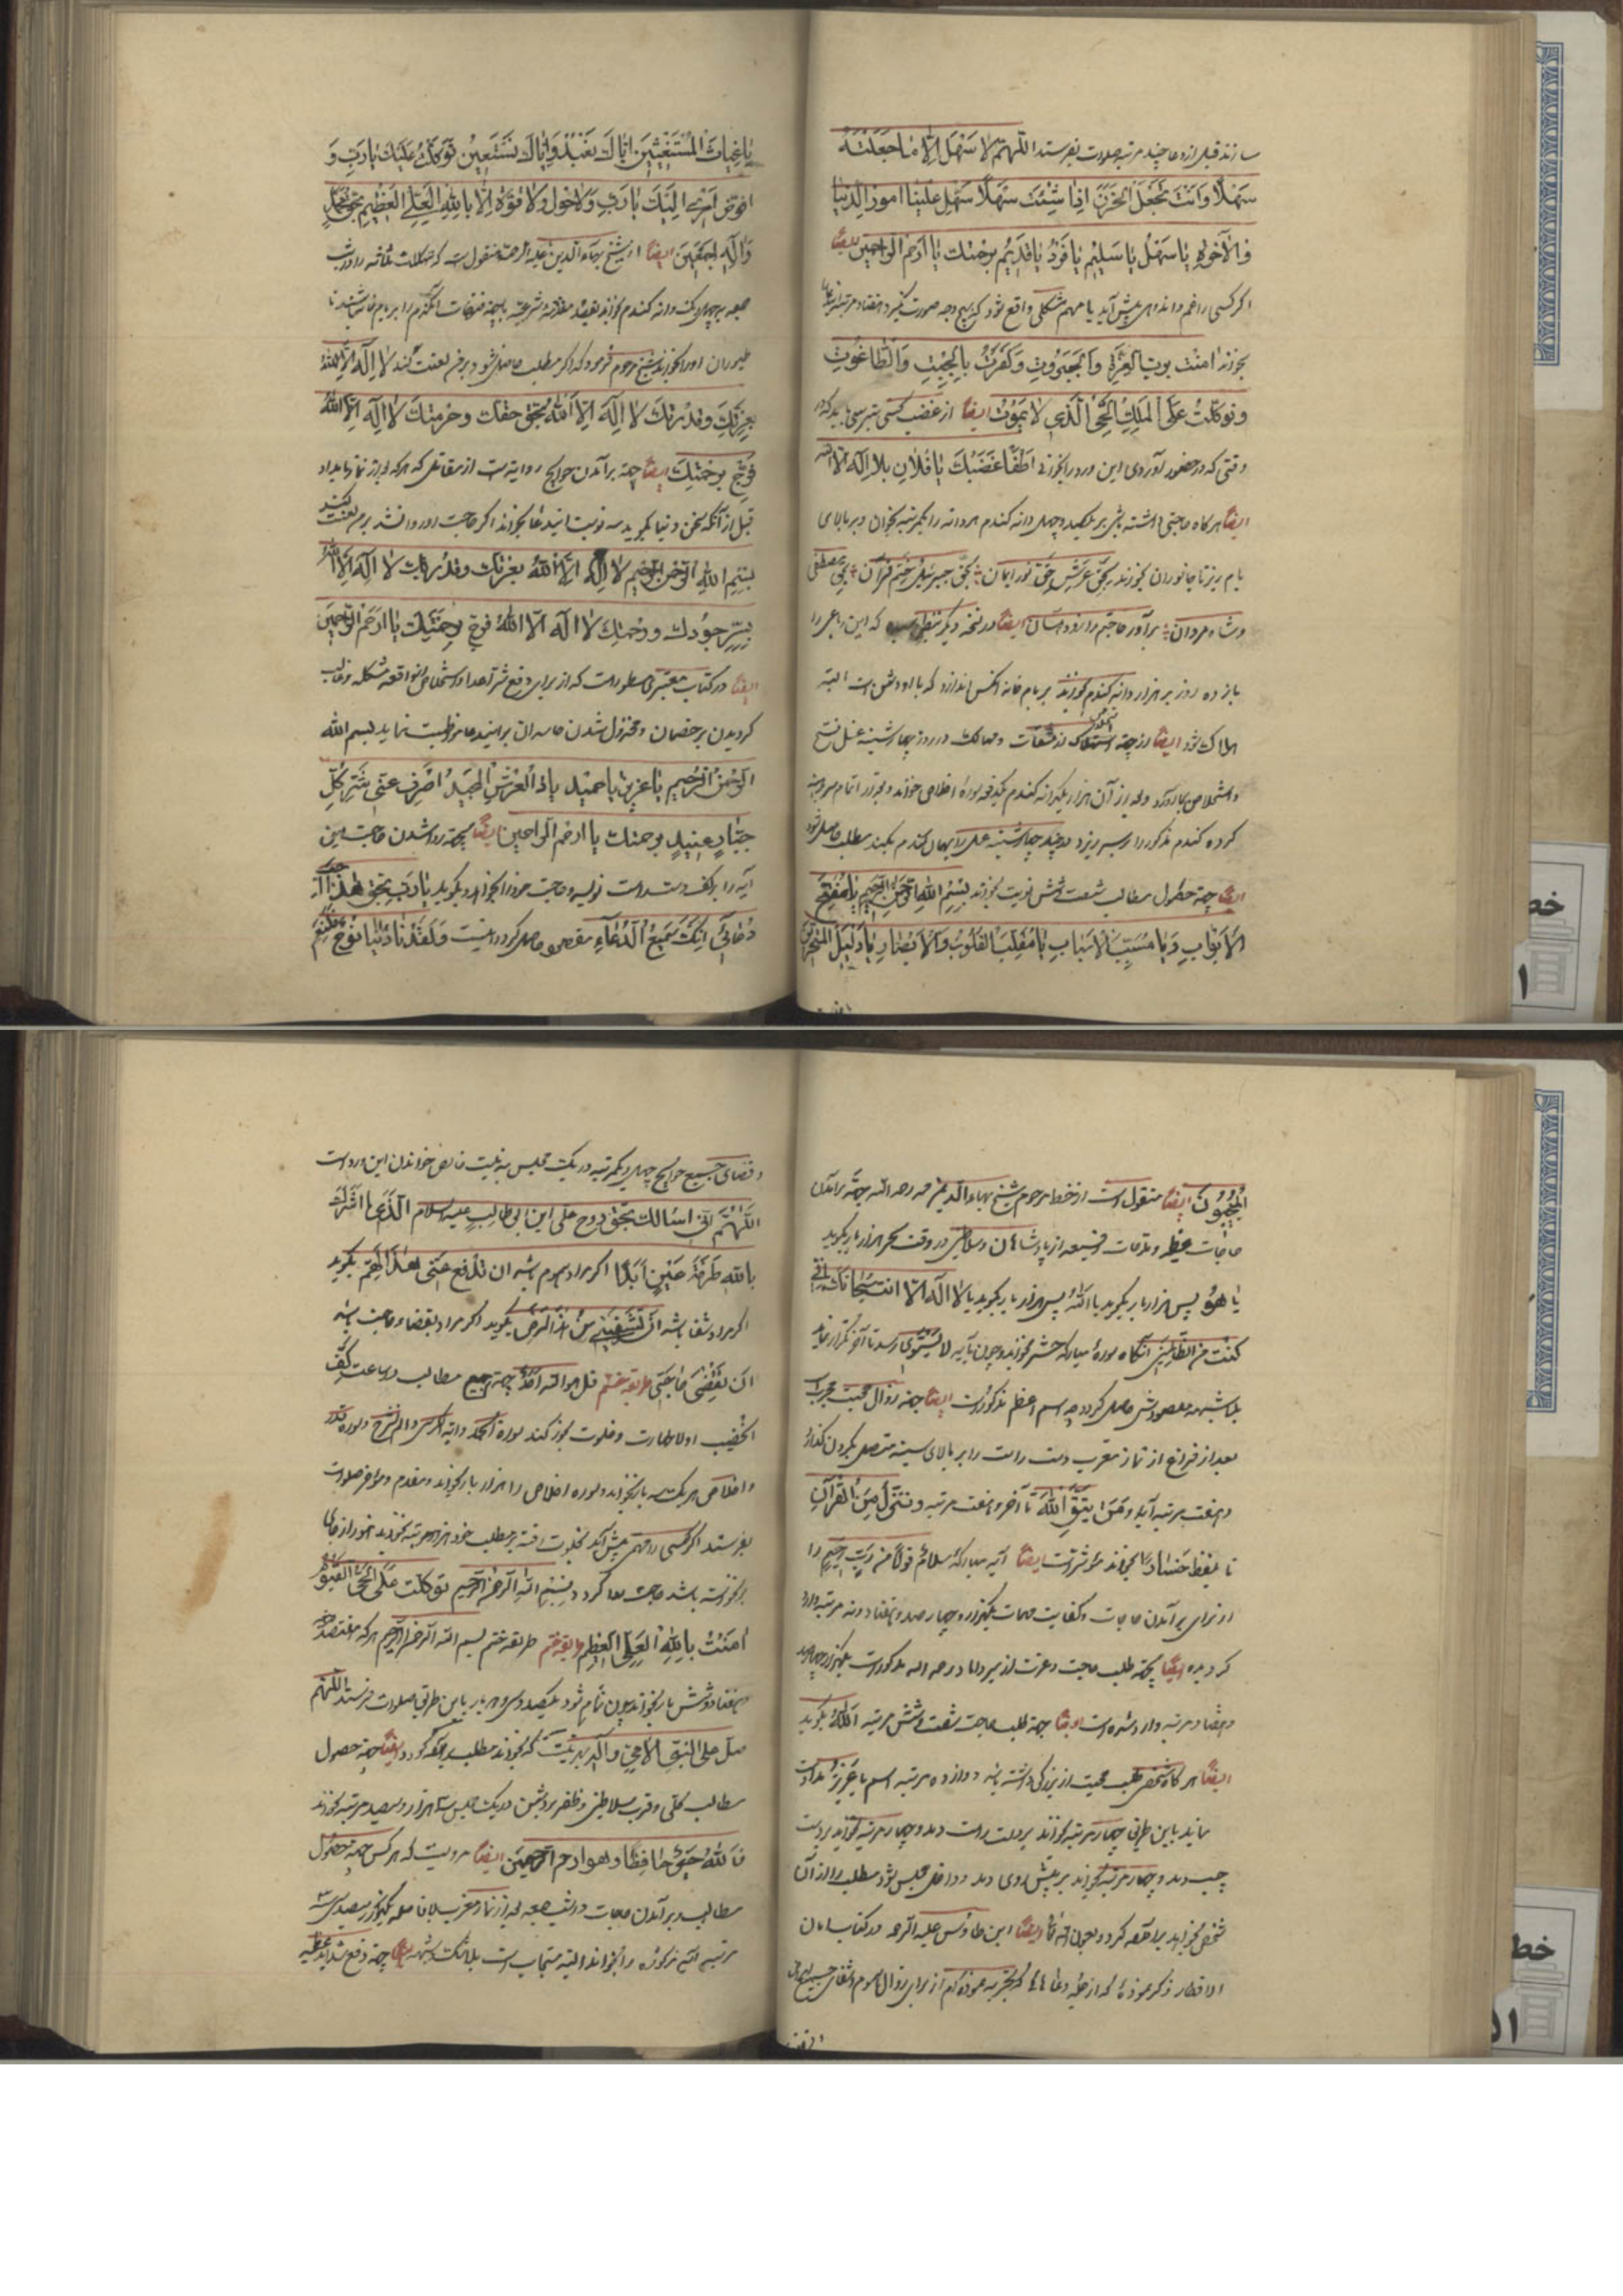 سازند قبل از دعا چند مرتبه صلوات بفرستد اللّهمّ لا سَهْلَ اِلّا ما جَعَلْتَهُ
سَهْلًا وَاَنْتَ تَجْعَلُ الحَزَنَ اِذا شِئْتَ سَهْلًا سَهِّل عَلَيْنا امورَ الدُنْيا
وَالآخِرَةِ يا سَهْلُ يا سَليمُ يا فَرْدُ يا قَديمُ برحمتك يا ارحم الراحمين ايضا
اگر کسی را غم و اندوهی پیش آید یا مهم مشکلی واقع شود که بهیچ وجه صورت نگیرد هفتاد مرتبه
بخواند امَنْتُ بِذي العِزَّةِ وَالجَبَروُتِ وَكَفَرْتُ بِالجِبْتِ وَالطّاغُوتِ
وَتَوَكَّلْتُ عَلَى المَلِكِ الحَيّ الَّذي لا يَموُتُ ايضا از غضب کسی بترسی باید که در
وقتی که در حضور او روی این ورد را بخوانی اَطْفَأْتُ غَضَبَكَ يا فلان بلا اله الّا الله
ايضا هرگاه حاجتی داشته باشی بر یکصد و چهل دانه گندم هر دانه را یکمرتبه بخوان و بر بالای
بام بریز تا جانوران بخورند بحق عرش حق نور ایمان بحق جبرئیل و ختم قرآن بحق مصطفی
و شاه مردان برآور حاجتم را زود آسان ايضا در نسخه دیگر بنظر رسیده که این رباعی را
یازده روز بر هزار دانه گندم بخواند بر بام خانه آنکس اندازد که با او دشمن است البته
هلاک شود ايضا از جهة استخلاص از مشقات و مهالک در روز چهارشنبه غسل فتح
و استخلاص بجا آورد و بعد از آن هزار و یکدانه گندم یکدفعه سوره اخلاص خواند و بعد از اتمام
کرده گندم مذکور را بسر ریزد و چند چهارشنبه عمل را بهمان گندم بکند مطلب حاصل شود
ايضا جهة حصول مطالب شصت و شش نوبت بخواند بسم الله الرحمن الرحيم يا مفتّح
الاَبْوابِ وَيا مُسَبِّبَ الاَسْبابِ يا مُقَلِّبَ القُلوُبِ وَالاَبْصارِ يا دَليلَ المتحيّرين
يا غِياثَ المُسْتَغيثينَ اِيّاكَ نَعْبُدُ وَاِيّاكَ نَسْتَعينُ تَوَكَّلْتُ عَلَيْكَ يا رَبِّ وَ
اُفَوِّضُ اَمْري اِلَيْكَ يا رَبِّ وَلا حَوْلَ وَلا قُوَّةَ اِلّا بِاللهِ العَلِيِّ العَظيمِ بحق محمّد
وَآلِهِ اجمَعينَ ايضا از شیخ بهاء الدین علیه الرحمه منقول است که مهللات ثلاثه را در شب
جمعه بر چهل و یک دانه گندم بخواند بقصد مقاصد شرعیه بجهة مهمات و گندم را بر بام خانه بپاشد تا
طیوران او را بخورند شیخ مرحوم فرمود که اگر مطلب حاصل نشود بر من لعنت کند لا اِلهَ اِلّا اللهُ
بِعِزَّتِكَ وَقُدْرَتِكَ لا اِلهَ اِلّا اللهُ بِحَقِّ حقك وحُرمتِكَ لا اِلهَ اِلّا اللهُ
فَرِّج بِرَحْمَتِكَ ايضا جهة برآمدن حوایج روایتست از مقاتل که هر که بعد از نماز بامداد
قبل از آنکه سخن دنیا بگوید سه نوبت ایندعا بخواند اگر حاجت او روا نشد بر من لعنت کند
بِسْمِ اللهِ الرّحمنِ الرّحيمِ لا اِلهَ اِلّا اللهُ بعزتك وقدرتك لا اِلهَ اِلّا اللهُ
بِسِرِّ جُودِكَ ورحمتِكَ لا اله الّا اللهُ فرّج برحمتِكَ يا ارحَمَ الرّاحمينَ
ايضا در کتاب معتبری مسطور است که از برای دفع شر اعدا و استخلاص از واقعه مشکله و غالب
گردیدن بر خصمان و مخذول شدن حاسدان بر ایندعا مواظبت نماید بسم الله
الرّحمن الرّحيم يا عزيز يا حميد يا ذَالعَرْشِ المَجيدِ اصْرِف عَنّي شَرَّ كُلِّ
جَبّارٍ عَنيدٍ برحمتك يا ارحم الراحمين ايضا بجهة روا شدن حاجت این
آیه را بر کف دست راست نویسد و حاجت خود را بخواهد و بگوید يا رَبِّ بحقّ هذا
دُعائي اِنَّكَ سَميعُ الدُّعاءِ مقصود حاصل گردد اینست وَلَقَدْ نادانا نوُحٌ فَلَنِعْمَ
المُجيبُونَ ايضا منقول است از خط مرحوم شیخ بهاء الدین محمد رحمه الله جهة برآمدن
حاجات عظیمه و مدعیات وسیعه از پادشاهان و سلاطین در وقت سحر هزار بار بگوید
يا هُوَ پس هزار بار بگوید يا اللهُ پس هزار بار بگوید يا لا اله الّا انت سبحانك انّي
كنت من الظالمين آنگاه سورهٔ مبارکه حشر بخواند و چون بآیه لا يستوي رسد تا آخر تکرار نماید
بلا شبهه مقصودش حاصل گردد چه اسم اعظم مذکور است ايضا جهة زوال محبت مجرب است
بعد از فراغ از نماز مغرب دست راست را بر بالای سینه متصل بگردن گذارد
و هفت مرتبه آیه وَمَنْ يَتَّقِ اللهَ تا آخر و هفت مرتبه و نُنَزِّلُ مِنَ القُرآنِ
تا بلفظ خَسارا بخواند مؤثر است ايضا آیه مبارکهٔ سلامٌ قولًا من ربٍّ رحيم را
از برای برآمدن حاجات و کفایت مهمات یکهزار و چهارصد و هفتاد و نه مرتبه وارد
گردیده ايضا بجهة طلب حاجت و عزت از میرداماد رحمه الله مذکور است یکهزار و چهارصد
و هشتاد مرتبه وارد شده است ايضا جهة طلب حاجت شصت و شش مرتبه اللهُ بگوید
ايضا هرگاه شخصی طلب محبت از بزرگی داشته باشد دوازده مرتبه اسم يا عزيز مداومت
نماید باین طریق چهار مرتبه بخواند بر دست راست دمد و چهار مرتبه بخواند بر دست
چپ دمد و چهار مرتبه بخواند بر پیش روی دمد و داخل مجلس شود مطلب را از آن
شخص بخواهد برآمده گردد بعون الله تعالی ايضا ابن طاوس علیه الرحمه در کتاب امان
الاخطار ذکر نموده که از جمله دعاهائی که تجربه نموده‌ام از برای زوال هموم و شفای جمیع امراض
و قضای جمیع حوایج چهل و یکمرتبه در یک مجلس به نیت خالص خواندن این ورد است
اللّهُمّ انّي اسئلك بحق روح علی ابن ابی طالب علیه السلام الّذي ما اَشْرَكَ
بِاللهِ طَرْفَةَ عَيْنٍ اَبَدًا اگر مراد هم و غم باشد ان تَدفع عَنّي هذا الهمّ بگوید
اگر مراد شفا باشد اَنْ تَشْفِيَني مِنْ هذا المرض بگوید اگر مراد بقضاء حاجت باشد
اَنْ تَقْضِيَ حاجَتي طریقه ختم قل هو الله احد جهة جمیع مطالب در ساعت کف
الخضیب اولا طهارت و خلوت بجوز کند سوره الحمد و آیة الکرسی و الم نشرح و سوره قدر
و اخلاص هر یک سه بار بخواند و سوره اخلاص را هزار بار بخواند و مقدم و مؤخر صلوات
بفرستد اگر کسی را مهمی پیش آید بخلوت رفته بر مطلب خود هزار مرتبه بخواند هنوز از جای
برنخواسته باشد حاجت روا گردد بسم الله الرحمن الرحيم توكلت على الحيّ القيّوم
امَنْتُ بِاللهِ العَلِيّ العَظيم طریقه ختم طریقه ختم بسم الله الرحمن الرحيم هر که هفتصد
و هفتاد و شش بار بخواند چون تمام شود یکصد و سی و دو بار باین طریق صلوات فرستد اللّهُمّ
صلّ على النبيّ الامّي وآله بهر نیّت که بخواند مطلب برآمده گردد ايضا جهة حصول
مطالب کلی و قرب سلاطین و ظفر بر دشمن در یک مجلس سه هزار و سیصد مرتبه بخواند
فَاللهُ خَيْرٌ حافِظًا وهو ارحم الرّاحمين ايضا مرویست که هر کس جهة حصول
مطالب و برآمدن حاجات در شب جمعه بعد از نماز مغرب بلافاصله یکهزار و سیصد و سی و سه
مرتبه آیه مذکوره را بخواند البته مستجاب است بلا شک و شبهه ايضا جهة دفع شداید عظیمه